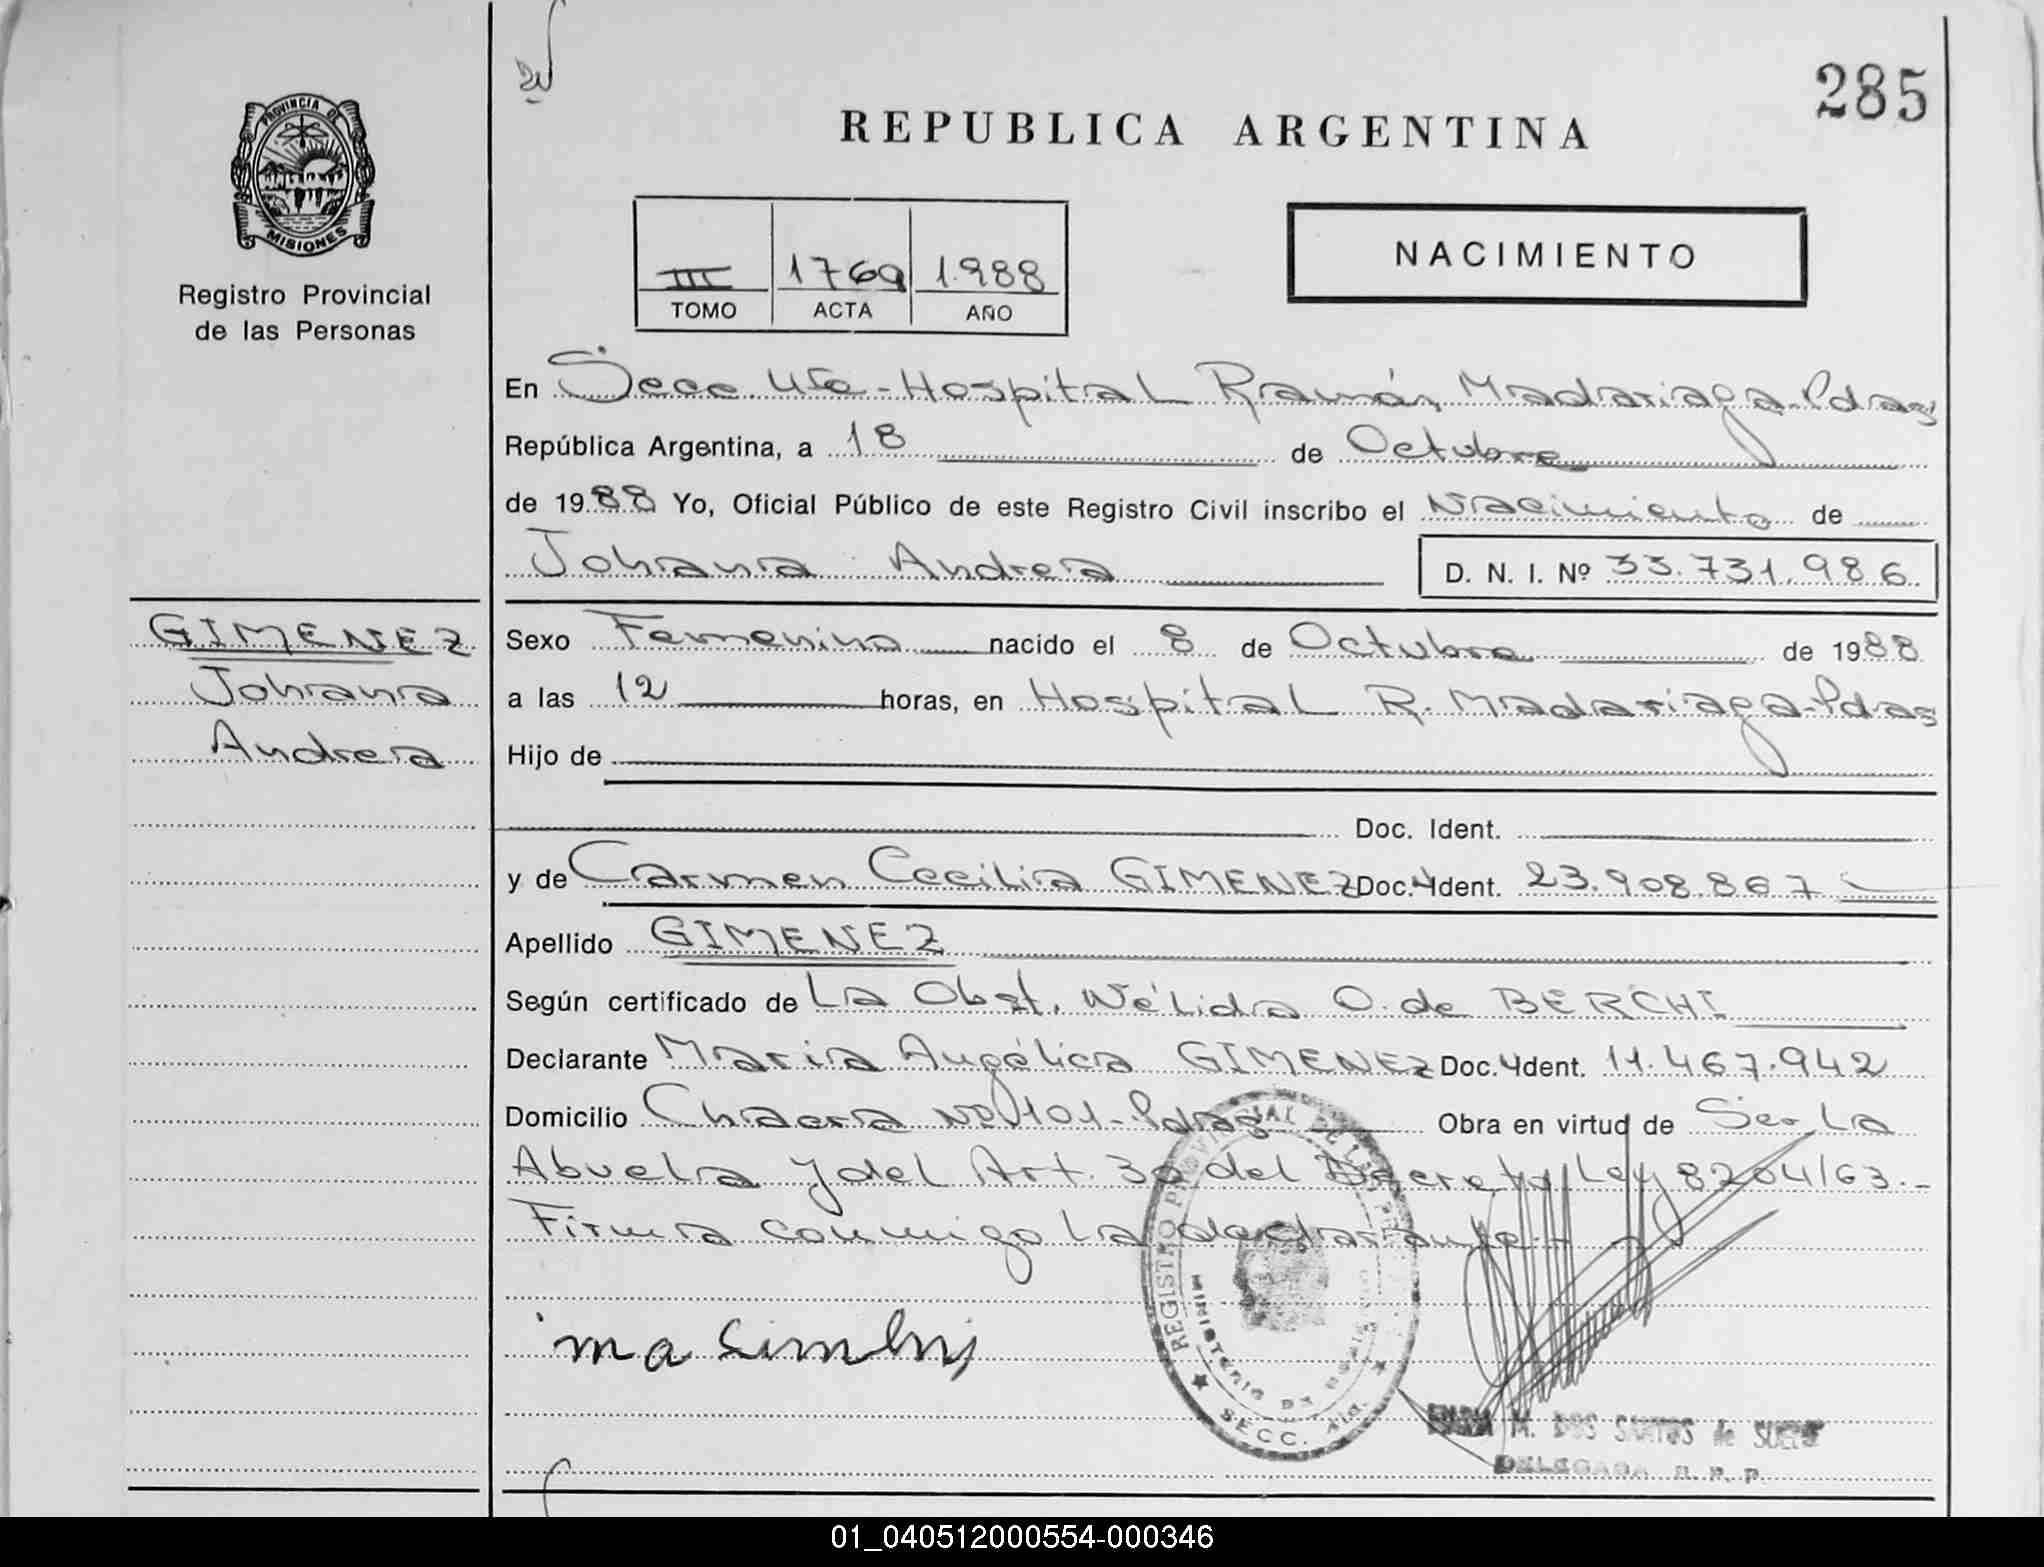 285
PROVINCIA DE
MISIONES
REPUBLICA ARGENTINA
Registro Provincial
de las Personas
III 1769 1.988
TOMO ACTA AÑO
NACIMIENTO
En Secc. 4ta - Hospital Ramón Madariaga - Pdas
República Argentina, a 18 de Octubre
de 1988 Yo, Oficial Público de este Registro Civil inscribo el Nacimiento de
Johana Andrea D. N. I. Nº 33.731.986.
GIMENEZ
Johana
Andrea
Sexo Femenino nacido el 8 de Octubre de 1988
a las 12 horas, en Hospital R. Madariaga - Pdas
Hijo de
Doc. Ident.
y de Carmen Cecilia GIMENEZ Doc. Ident. 23.908.867
Apellido GIMENEZ
Según certificado de La Obst. Nélida O. de BERCHI
Declarante Maria Angélica GIMENEZ Doc. Ident. 11.467.942
Domicilio Chacra Nº 101 - Pdas Obra en virtud de Ser La
Abuela y del Art. 30 del Decreto Ley 8204/63.-
Firma conmigo la declarante.-
REGISTRO PROVINCIAL DE LAS
MINISTERIO DE
SECC. 4ta.
M. DOS SANTOS de
DELEGADA R. P. P.
01_040512000554-000346